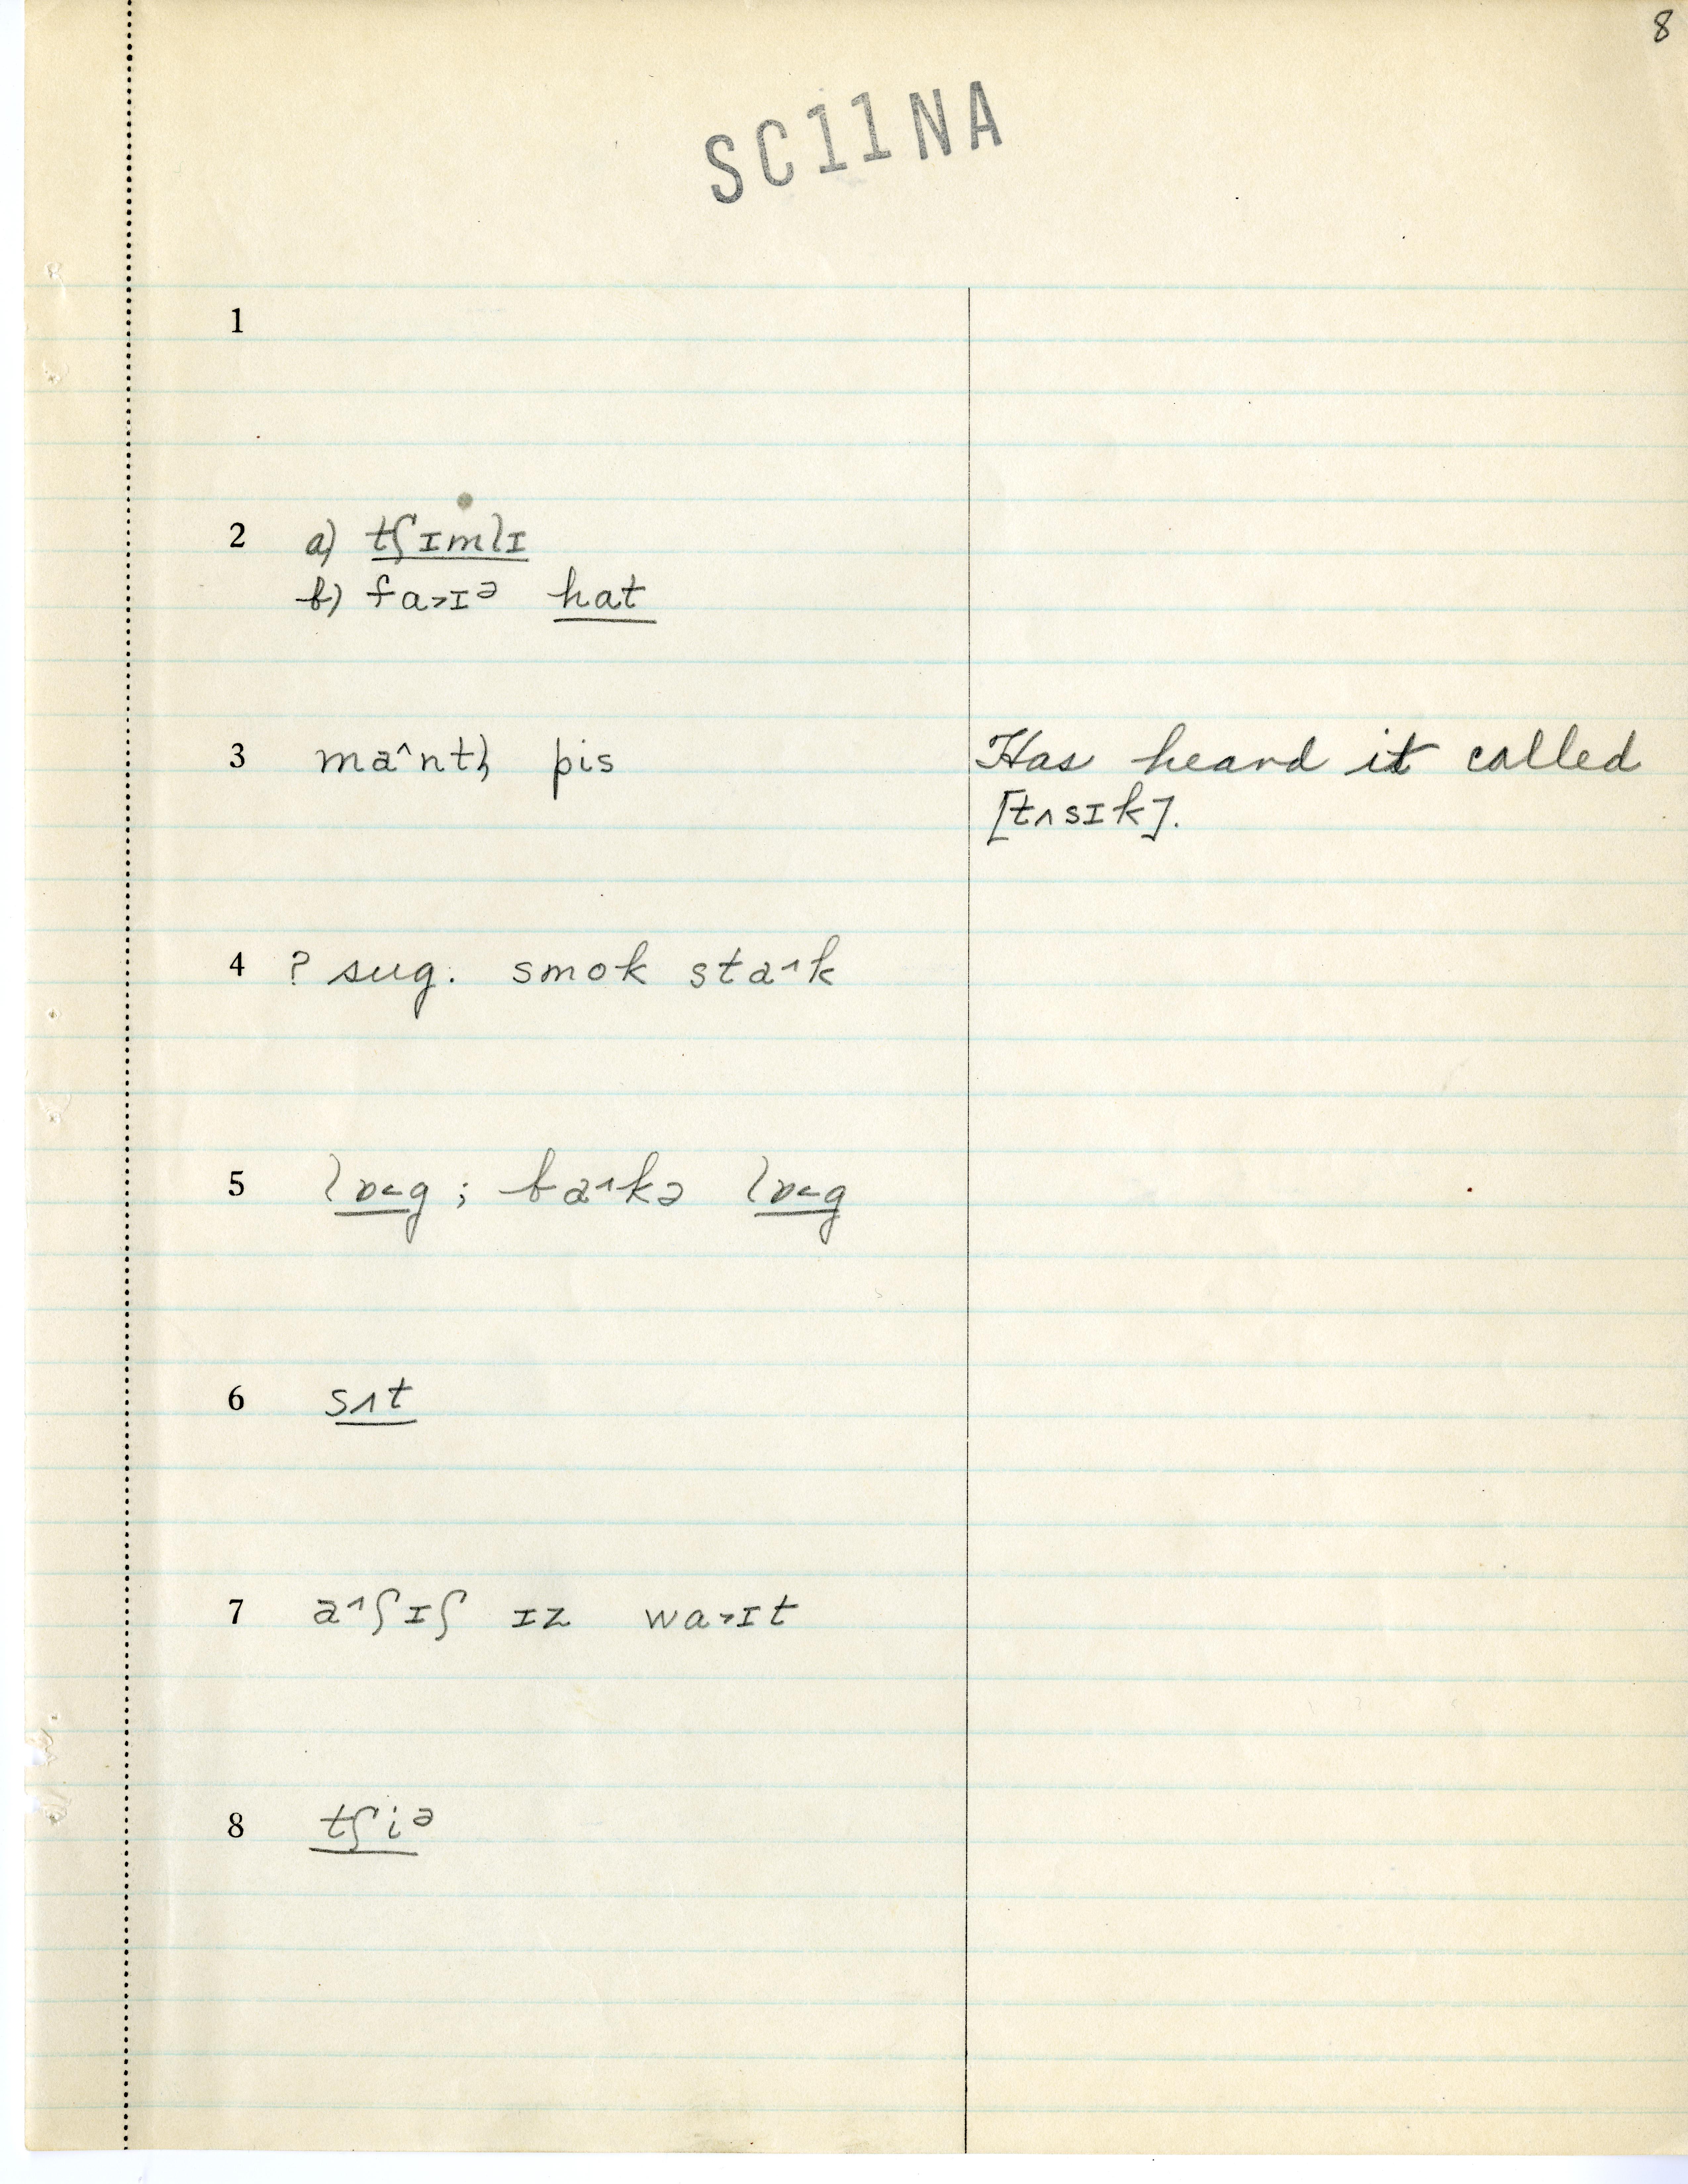 8
SC11NA
1
2 a) tʃɪmlɪ
b) fa˃ɪᵊ hat
3 ma^ntl̩ pis
Has heard it called
[tʌsɪk].
4 ? sug. smok sta^k
5 lɒ˂g; ba^kə lɒ˂g
6 sʌt
7 a^ʃɪʃ ɪz wa˃ɪt
8 tʃiᵊ